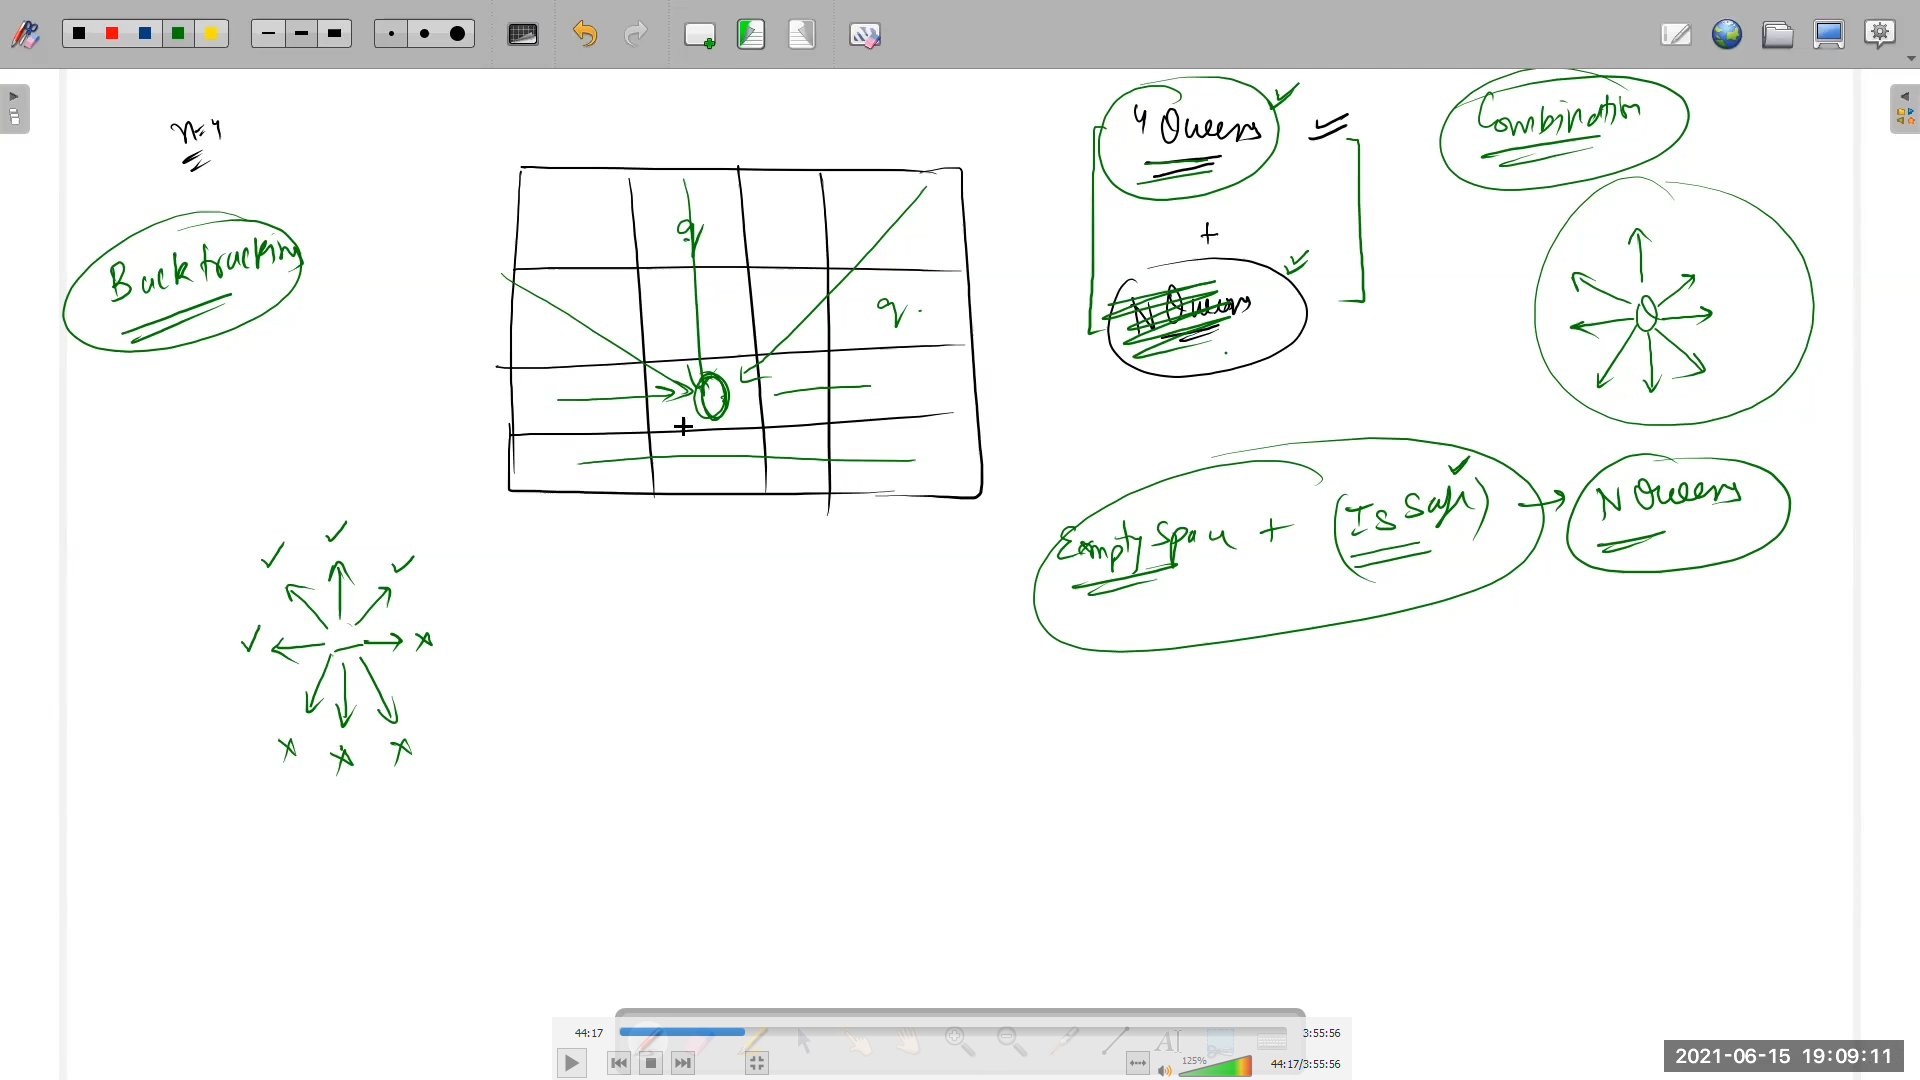 n=4
Backtracking
q
q.
4 Queens
+
N Queens
Combination
Empty Space + (Is Safe) → N Queens
44:17
3:55:56
125%
44:17/3:55:56
2021-06-15 19:09:11